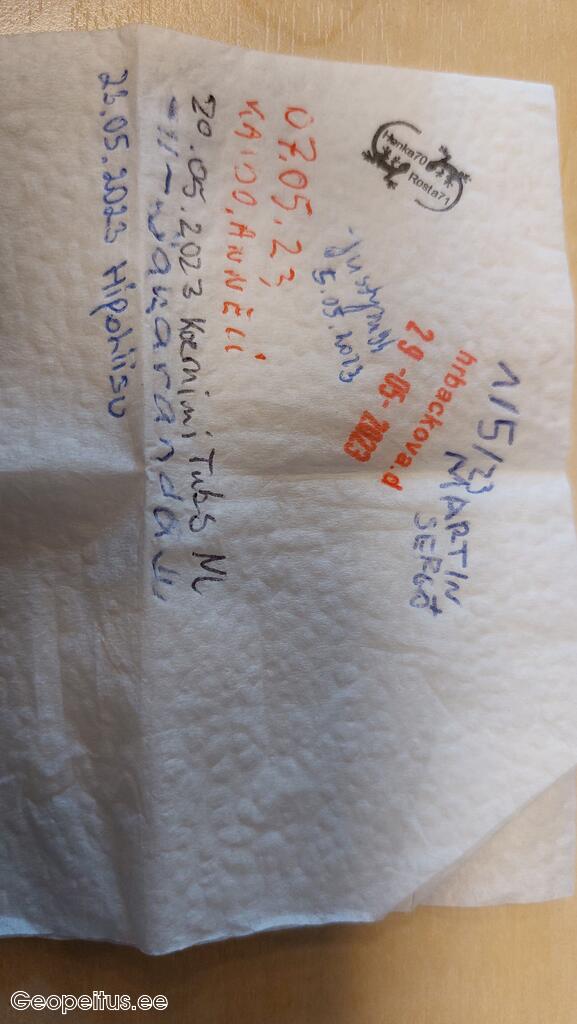 Honka70
Rosta71
1/5/23
MARTIN
SERGO
hrbackova.d
29-05-2023
5.05.2023
07.05.23
KAIDO, ANNELI
20.05.2023 Kaernimi Tubs NL
-11-
23.05.2023 Hipohiisu
Geopeitus.ee